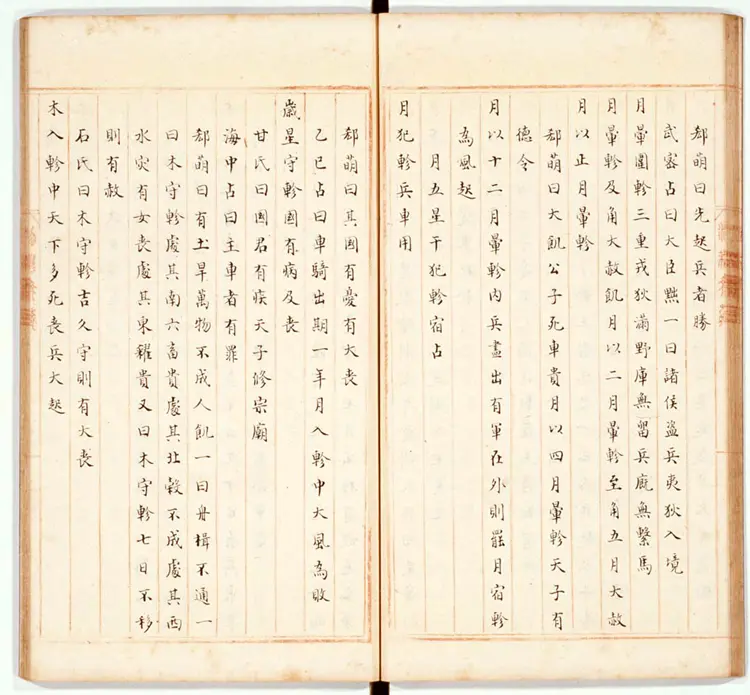 郄萌曰先起兵者勝
武密占曰大臣黜一曰諸侯盜兵夷狄入境
月暈圍軫三重戎狄滿野庫無留兵廐無繫馬
月暈軫及角大赦飢月以二月暈軫至角五月大赦
月以正月暈軫
郄萌曰大飢公子死車貴月以四月暈軫天子有
德令
月以十二月暈軫內兵盡出有軍在外則罷月宿軫
為風起
月五星干犯軫宿占
月犯軫兵車用
郄萌曰其國有憂有大喪
乙巳占曰車騎出期一年月入軫中大風為敗
歲星守軫國有病及喪
甘氏曰國君有疾天子修宗廟
海中占曰主車者有罪
郄萌曰有土旱萬物不成人飢一曰舟楫不通一
曰木守軫處其南六畜貴處其北穀不成處其西
水灾有女喪處其東糴貴又曰木守軫七日不移
則有赦
石氏曰木守軫吉久守則有大喪
木入軫中天下多死喪兵大起